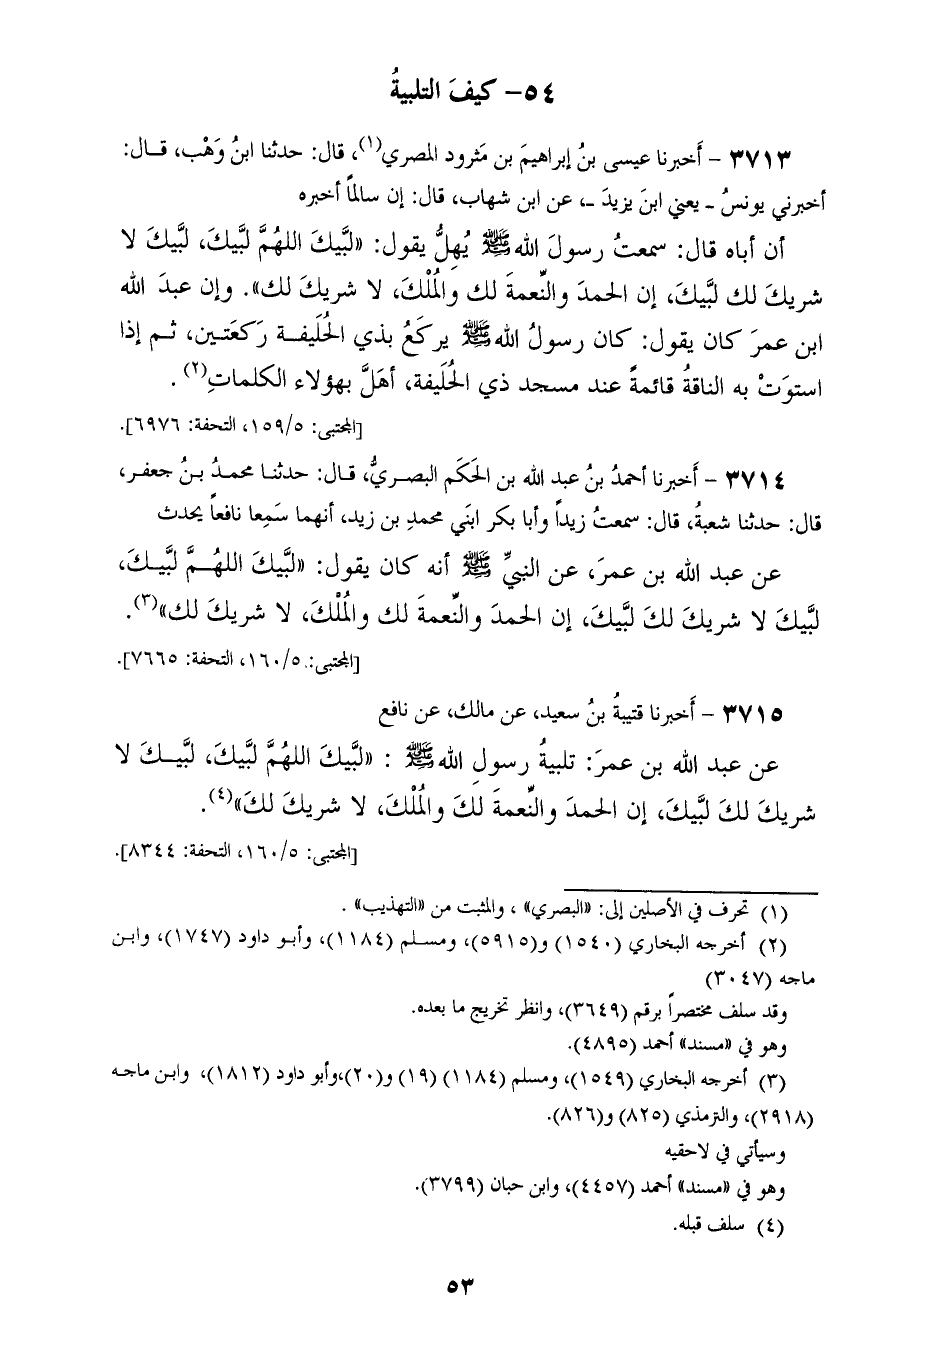 ٥٤- كيفَ التلبيةُ
٣٧١٣ - أَخبرنا عيسى بنُ إبراهيمَ بن مَثرود المصري(١)، قال: حدثنا ابنُ وَهْب، قـال:
أخبرني يونسُ ـ يعني ابنَ يزيدَ ـ، عن ابن شهاب، قال: إن سالماً أخبره
أن أباه قال: سمعتُ رسولَ اللهِ ﷺ يُهِلُّ يقول: «لبَّيكَ اللهُمَّ لبَّيكَ، لبَّيكَ لا
شريكَ لك لبَّيكَ، إن الحمدَ والنِّعمةَ لك والمُلْكَ، لا شريكَ لك». وإن عبدَ الله
ابن عمرَ كان يقول: كان رسولُ اللهِ ﷺ يركَعُ بذي الحُلَيفـة رَكعَتـين، ثـم إذا
استوَتْ به الناقةُ قائمةً عند مسجد ذي الحُلَيفة، أهَلَّ بهؤلاء الكلماتِ(٢).
[المجتبى: ١٥٩/٥، التحفة: ٦٩٧٦].
٣٧١٤ - أَخبرنا أحمدُ بنُ عبد الله بن الحَكَم البصـريُّ، قـال: حدثنـا محمـدُ بـنُ جعفر،
قال: حدثنا شعبةُ، قال: سمعتُ زيداً وأبا بكر ابنَي محمدِ بن زيد، أنهما سَمِعا نافعاً يحدث
عن عبد الله بن عمرَ، عن النبيِّ ﷺ أنه كان يقول: «لبَّيكَ اللهُـمَّ لبَّيـكَ،
لبَّيكَ لا شريكَ لكَ لبَّيكَ، إن الحمدَ والنِّعمةَ لك والمُلْكَ، لا شريكَ لك»(٣).
[المجتبى: ١٦٠/٥، التحفة: ٧٦٦٥].
٣٧١٥ - أَخبرنا قتيبةُ بنُ سعيد، عن مالك، عن نافع
عن عبد الله بن عمرَ: تلبيةُ رسولِ اللهِ ﷺ : «لبَّيكَ اللهُمَّ لبَّيكَ، لبَّيـكَ لا
شريكَ لكَ لبَّيكَ، إن الحمدَ والنِّعمةَ لكَ والمُلْكَ، لا شريكَ لكَ»(٤).
[المجتبى: ١٦٠/٥، التحفة: ٨٣٤٤].
(١) تحرف في الأصلين إلى: «البصري» ، والمثبت من «التهذيب» .
(٢) أخرجه البخاري (١٥٤٠) و(٥٩١٥)، ومسـلم (١١٨٤)، وأبـو داود (١٧٤٧)، وابـن
ماجه (٣٠٤٧)
وقد سلف مختصراً برقم (٣٦٤٩)، وانظر تخريج ما بعده.
وهو في «مسند» أحمد (٤٨٩٥).
(٣) أخرجه البخاري (١٥٤٩)، ومسلم (١١٨٤) (١٩) و(٢٠)،وأبو داود (١٨١٢)، وابـن ماجـه
(٢٩١٨)، والترمذي (٨٢٥) و(٨٢٦).
وسيأتي في لاحقيه
وهو في «مسند» أحمد (٤٤٥٧)، وابن حبان (٣٧٩٩).
(٤) سلف قبله.
٥٣